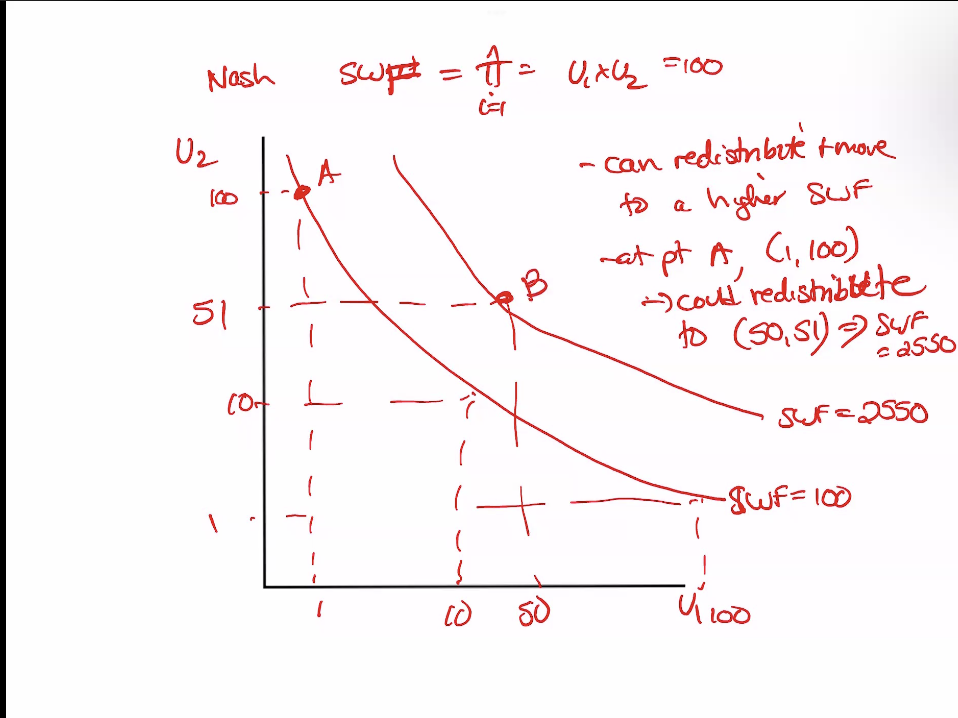 Nash SWF = Π = U₁×U₂ = 100
i=1
U₂
- can redistribute + move
to a higher SWF
- at pt A, (1, 100)
→ could redistribute
to (50, 51) ⇒ SWF
= 2550
A
100
B
51
10
SWF = 2550
SWF = 100
1
1 10 50 U₁ 100